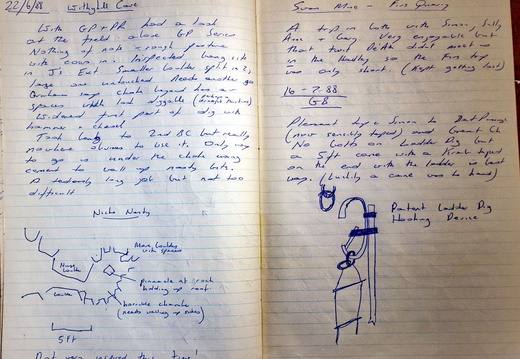 22/6/88 Withyhill Cave
With GP + PR had a look
at the field above GP Series
Nothing of note - rough pasture
with cows in. Inspected bang site
in J's East. Smaller boulder split in 2,
large one untouched. Needs another go.
Graham says choke beyond has air
spaces which look diggable
Widened first part of dig with
hammer & chisel.
Took to 2nd BC but really
nowhere obvious to use it. Only way
to go is under the choke using
cement to wall up nasty bits.
A tediously long job but not too
difficult
Niche Nasty
Huge boulder
More boulders
with spaces
Pinnacle of rock
holding up roof
boulder
horrible choke
(needs walling up sides)
5 ft
Not very inspired this time!
Swan Mine - Firs Quarry
A trip in both with Simon, Sully
Ann & Gary. Very enjoyable but
that twit didn't meet us
in the Hadley so the Firs trip
was only short. (Kept getting lost)
16-7-88
GB
Pleasant trip & Simon to Bat Passage
(now sensibly taped) and Great Ch
No bolts on Ladder Dig but
a soft cane with a krab taped
on the end with the ladder is best
way. (Luckily a cane was to hand)
Patent Ladder Dig
Hooking Device